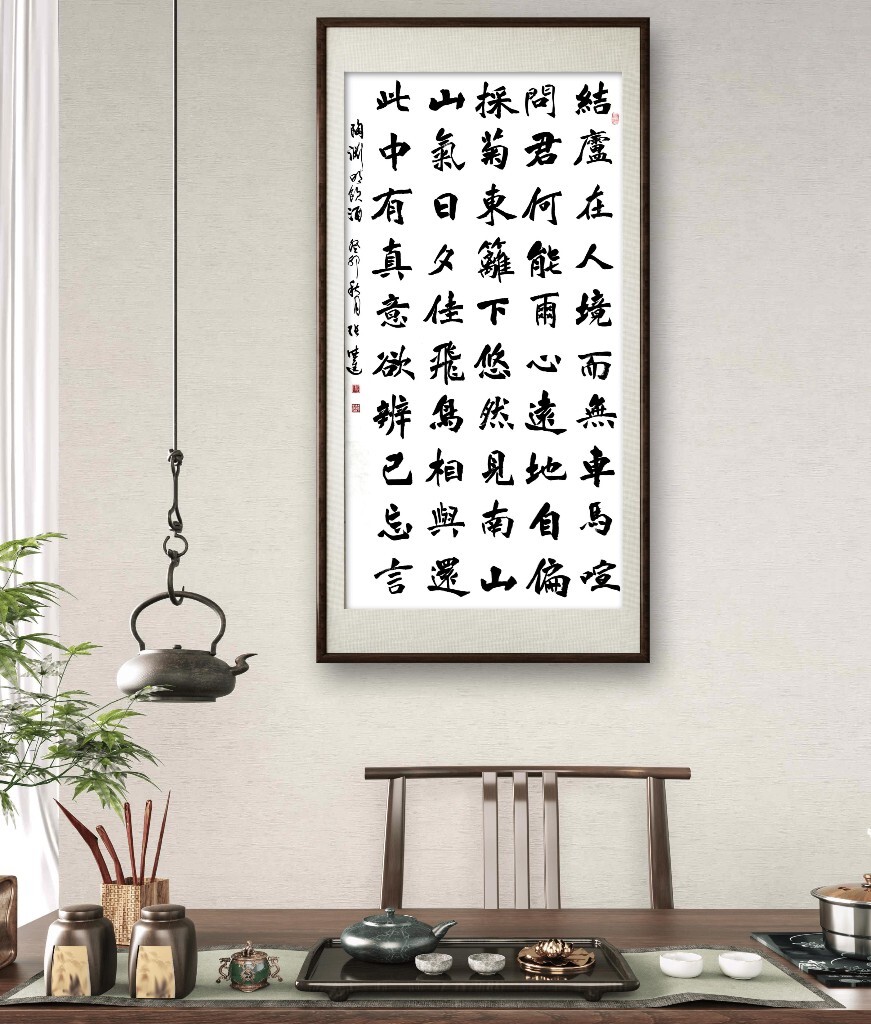 結廬在人境而無車馬喧
問君何能爾心遠地自偏
採菊東籬下悠然見南山
山氣日夕佳飛鳥相與還
此中有真意欲辨已忘言
陶淵明飲酒 癸卯秋月